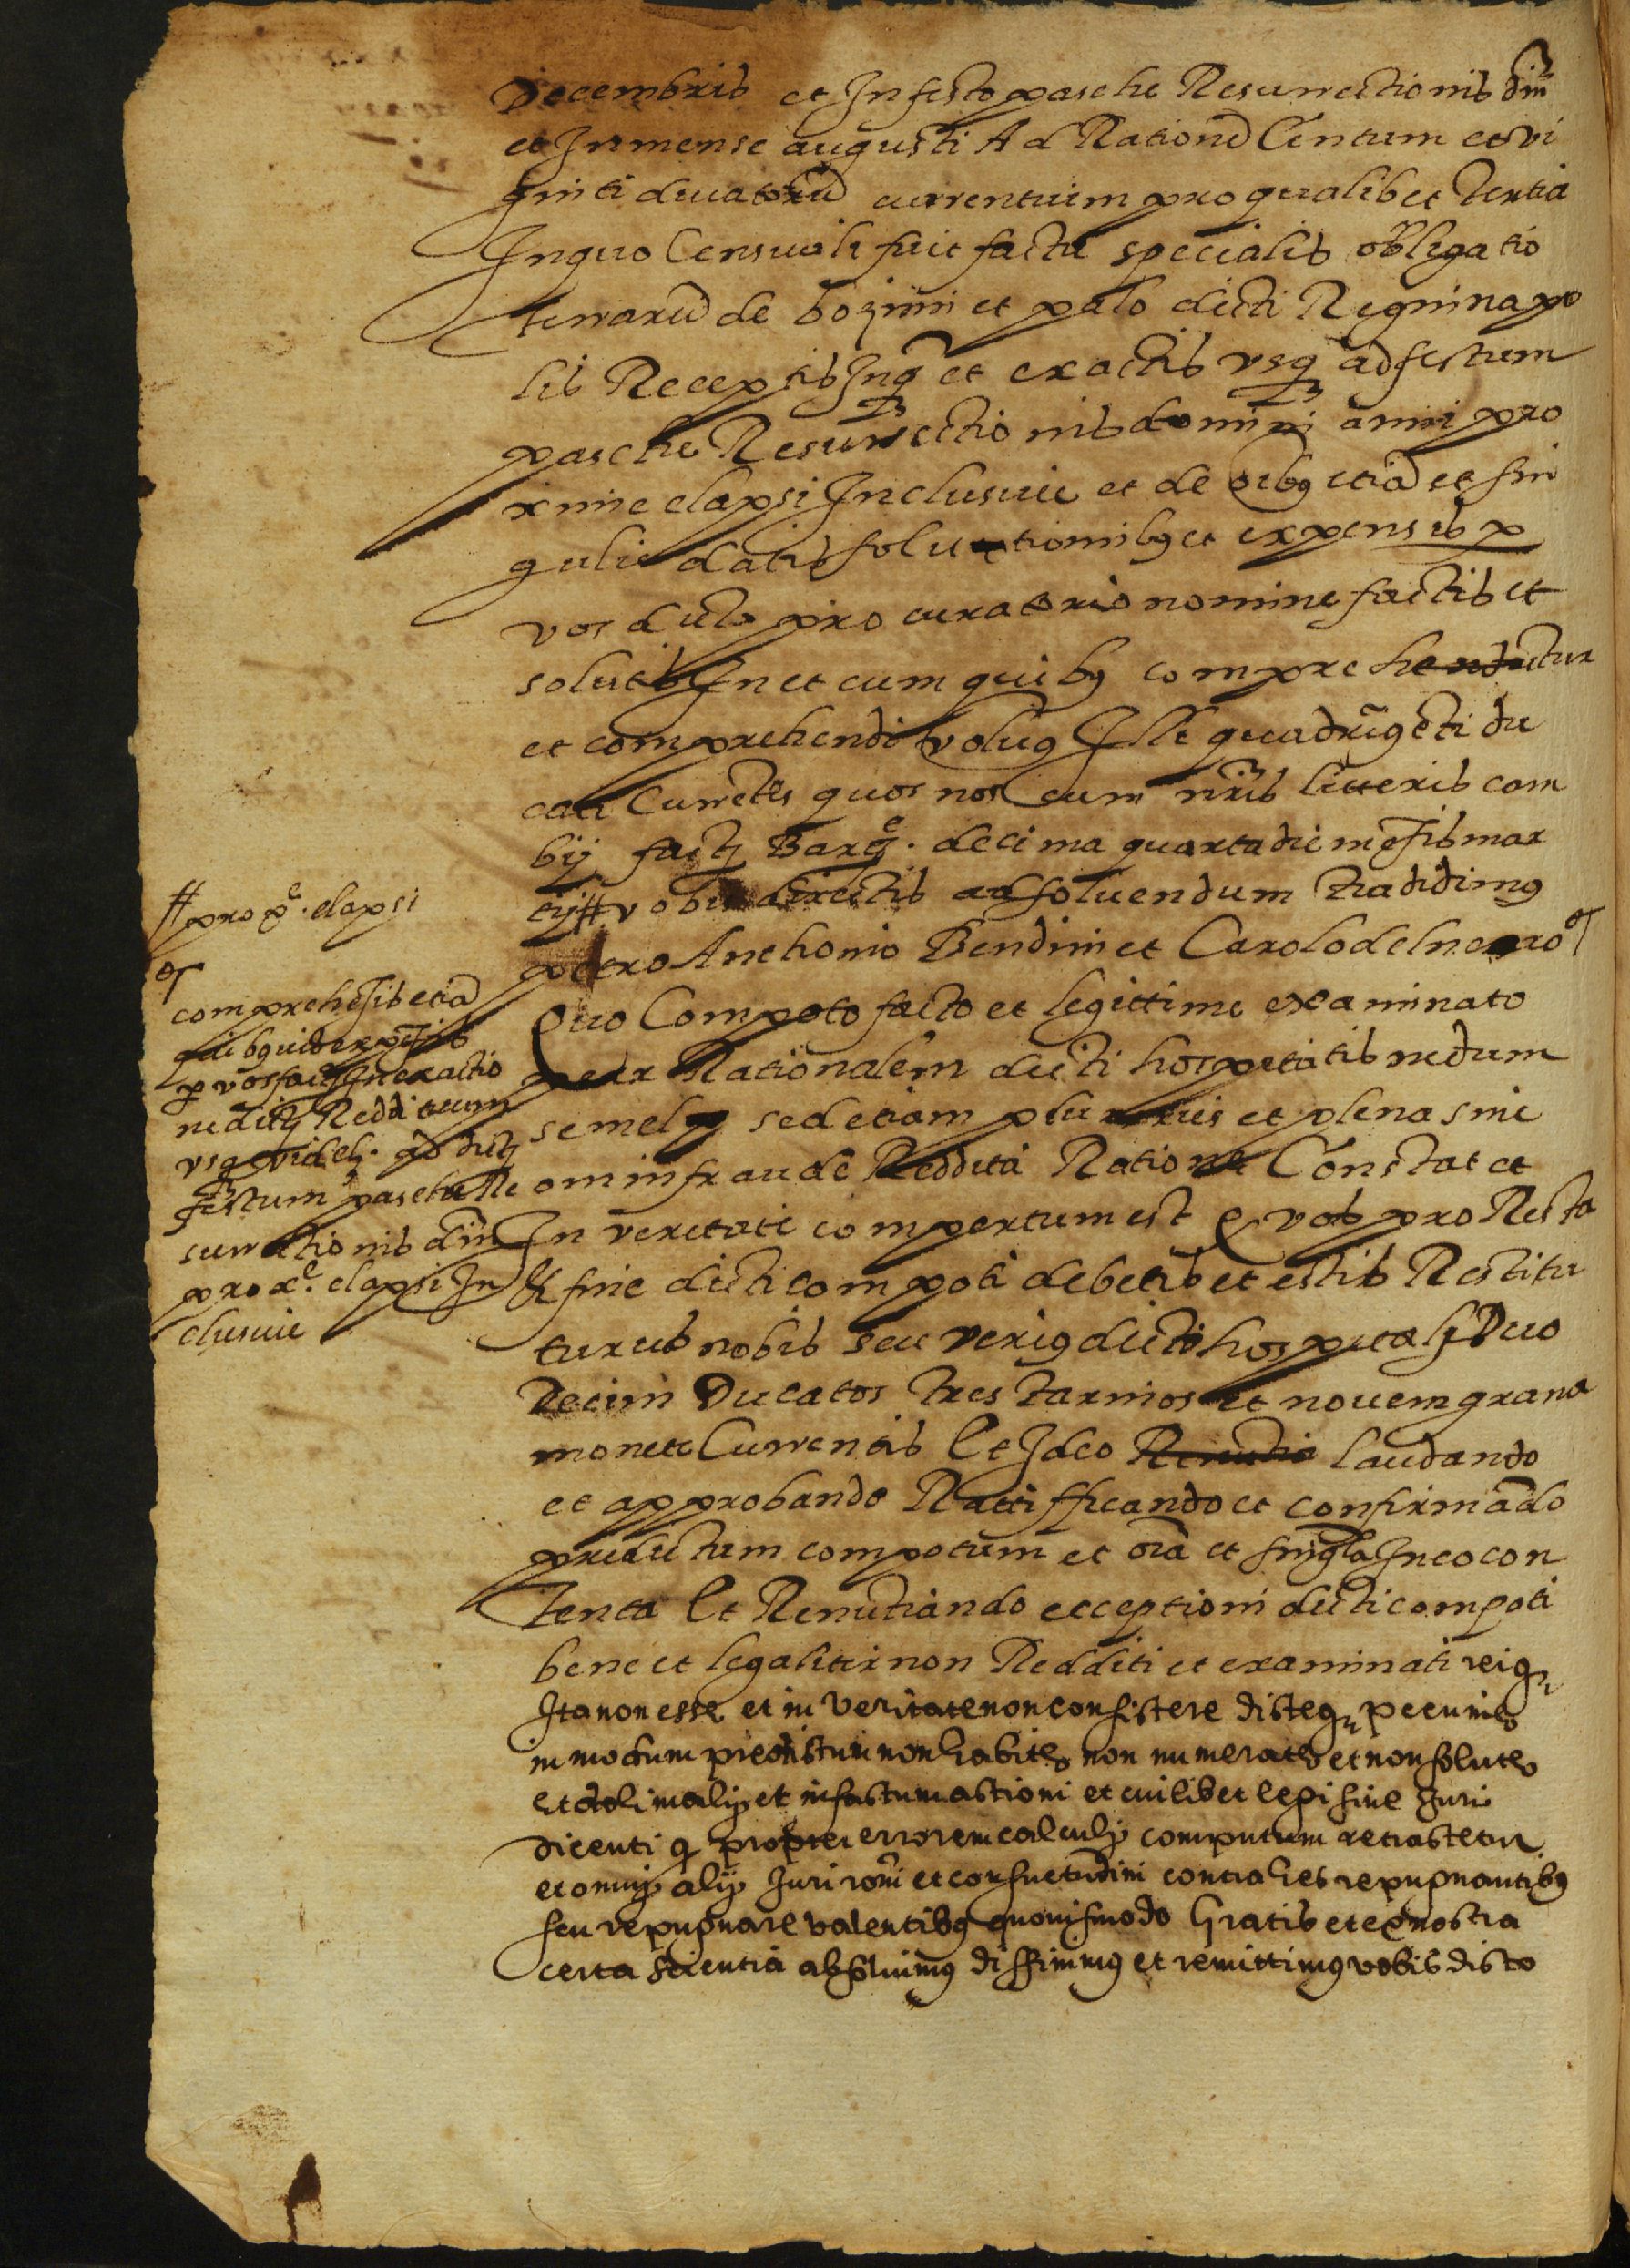 Decembris et In festo pasche Resurrectionis dni
et In mense augusti Ad Rationẽ Centum et vi
ginti ducatorũ currentium pro qualibet tertia
In quo Censuali fuit facta specialis obligatio
terrarũ de bozimi et palo dicti Regni napo
lis Receptis Inq et exactis vsq ad festum
pasche Resurrectionis domini anni pro
xime elapsi Inclusiue et de oibq etiã et sin
gulis datis solutionibq et expensis p
vos dicto procuratorio nomine factis et
solutis In et cum quibq comprehenduntur
et comprehendi voluq Illi quadrigẽti du
cati Currẽtes quos nos cum nris litteris cam
bij factj Barꝗe. decima quarta die mẽsis mar
tij # vobis directis ad soluendum tradidimq
petro Anthonio Bendini et Carolo del negro
Quo Compoto facto et legittime examinato
per Rationalem dicti hospitatis nedum
semel sed etiam pluries et plena sine
omni fraude Reddita Ratione Constat et
In veritate compertum est ꝙ vos pro Resta
& fine dicti compoti debetis et estis Restitu
turus nobis seu veriq dicto hospitalj Duo
decim Ducatos tres tarinos et nouem grana
monete Currentis Et Ideo Renũtia laudando
et approbando Rattifficando et confirmãdo
predictum compotum et oĩa et singla In eo con
tenta Et Renũtiando exceptioni dicti compoti
bene et legaliter non Redditi et examinati reiq
Ita non esse et in veritate non consistere dicteq pecunie
in modum predictum non habite non numerate et non solute
et doli malij et in factum actioni et cuilibet legi siue Juri
dicenti ꝙ propter errorem calculj computum retractetur
et omnij alij Juri roni et consuetudini contra hec repugnantibq
seu repugnare valentibq quouismodo Gratis et ex nostra
certa scientia absoluimq diffinimq et remittimq vobis dicto
# pro pe. elapsi
comprehẽsis etiã
quibquid expẽsis
p vos factj In exactio
ne dictj Reddituum
vsq videlz. ad dictj
festum pasche Re
surrectionis dni
prox.e elapsi In
clusiue